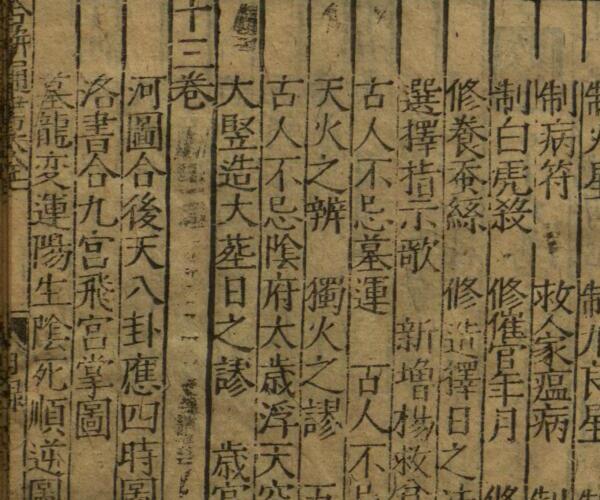 制火星 制九良星
制病符 救人家瘟病 制
制白虎殺 修催官年月 修
修養蚕絲 修造擇日之法
選擇指示歌 新增楊救貧
古人不忌墓運 古人不忌
天火之辨 獨火之謬 五
古人不忌陰府太歲浮天空
大竪造大塟日之謬 歲官
十三卷
河圖合後天八卦應四時圖
洛書合九宮飛宮掌圖
墓龍变運陽生陰死順逆圖
目錄